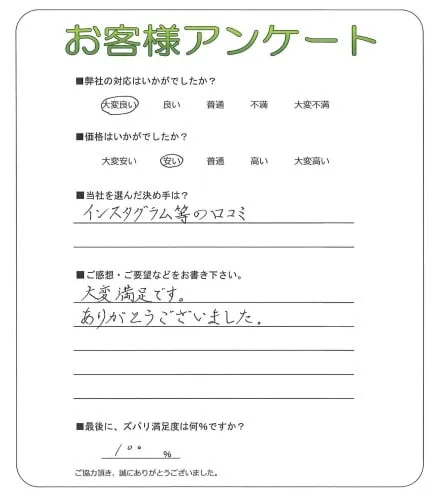 お客様アンケート
■弊社の対応はいかがでしたか？
大変良い 良い 普通 不満 大変不満
■価格はいかがでしたか？
大変安い 安い 普通 高い 大変高い
■当社を選んだ決め手は？
インスタグラム等の口コミ
■ご感想・ご要望などをお書き下さい。
大変満足です。
ありがとうございました。
■最後に、ズバリ満足度は何%ですか？
100 %
ご協力頂き、誠にありがとうございました。